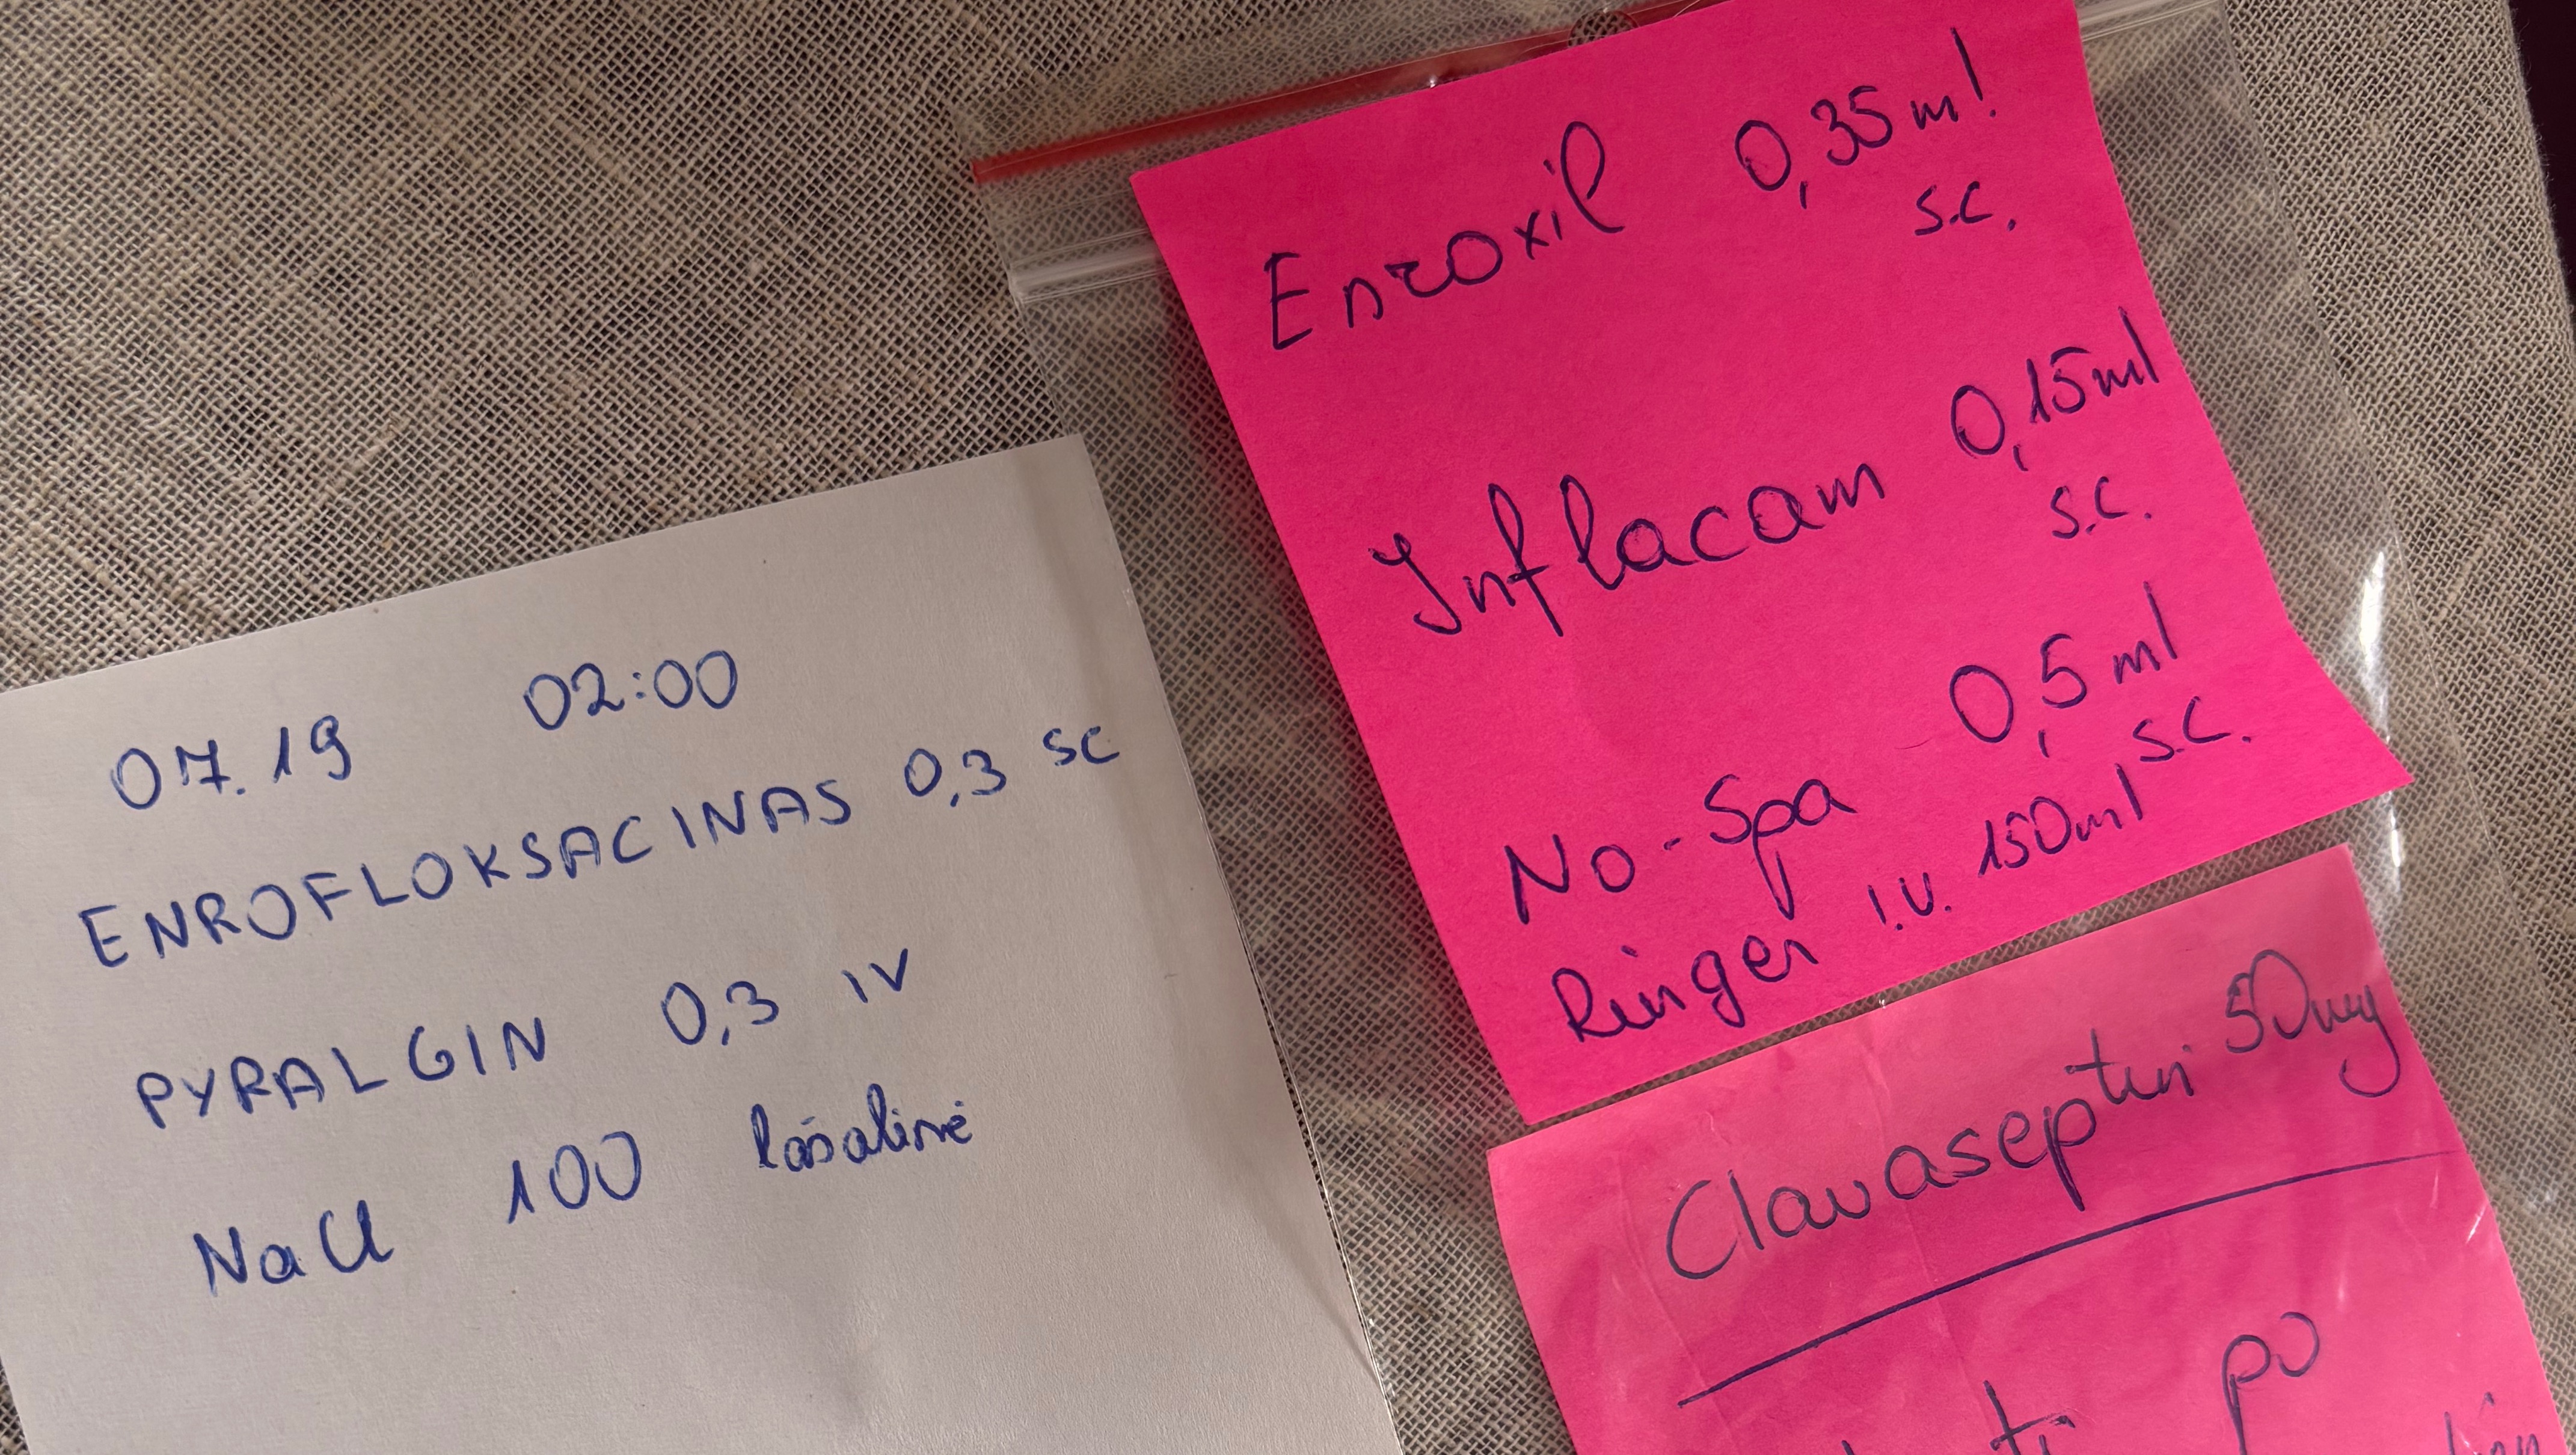 07.19 02:00
ENROFLOKSACINAS 0,3 SC
PYRALGIN 0,3 IV
NaCl 100 lašalinė
Enroxil 0,35 ml
s.c.
Inflacam 0,15ml
s.c.
No-Spa 0,5 ml
s.c.
Ringer i.v. 150ml
Clavaseptin 50mg
po